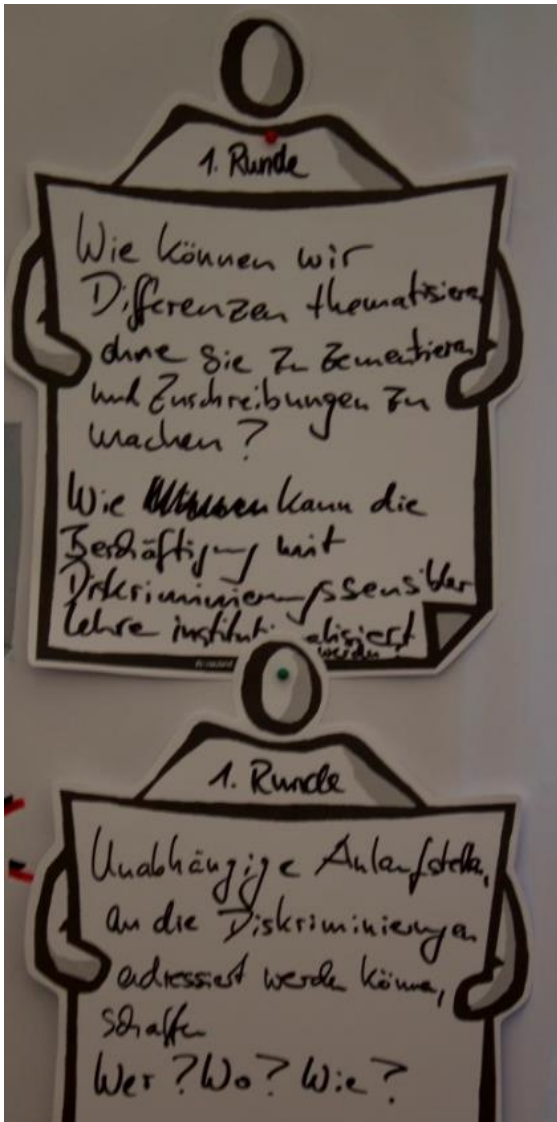 1. Runde
Wie können wir
Differenzen thematisieren
ohne Sie zu Zementieren
und Zuschreibungen zu
machen?
Wie kann die
Beschäftigung mit
Diskriminierungssensibler
Lehre institutionalisiert
werden?
1. Runde
Unabhängige Anlaufstellen,
an die Diskriminierungen
adressiert werden können,
schaffen
Wer? Wo? Wie?